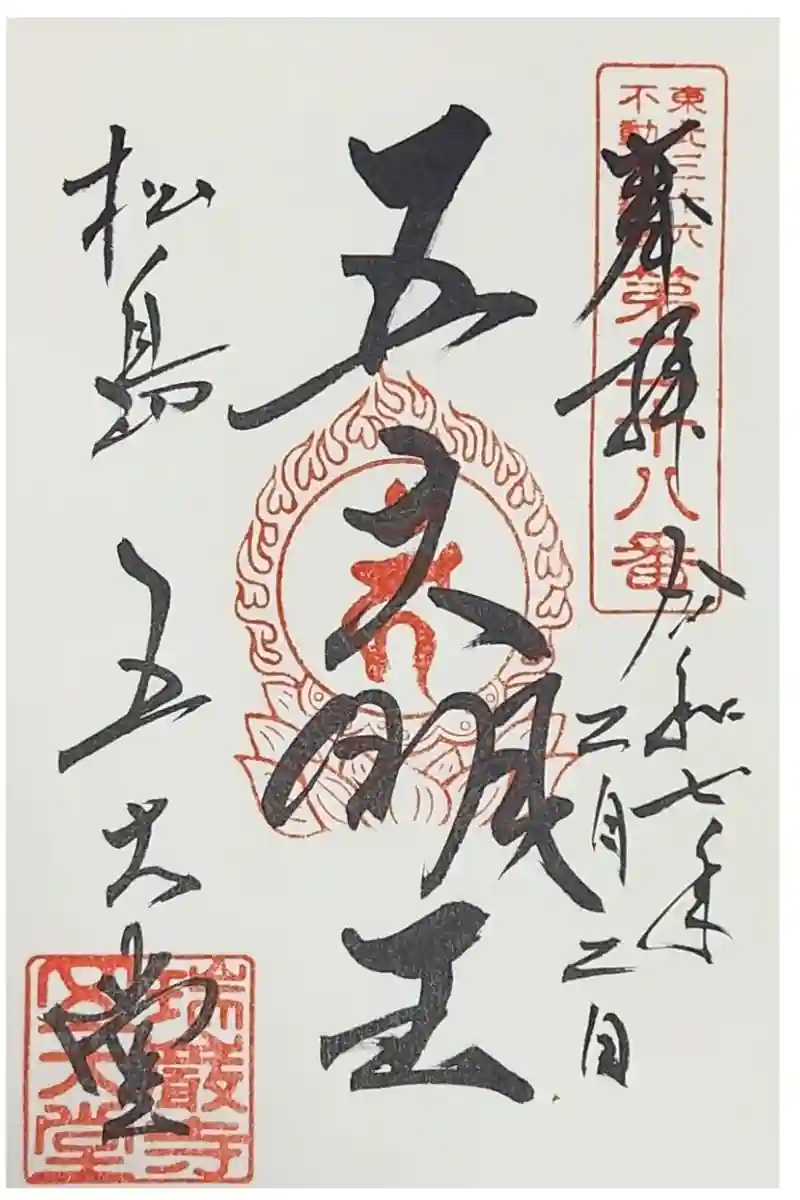 東北三十六
不動
第二十八番
奉拝
令和七年
二月二日
五大明王
松島 五大堂
瑞巌寺
五大堂